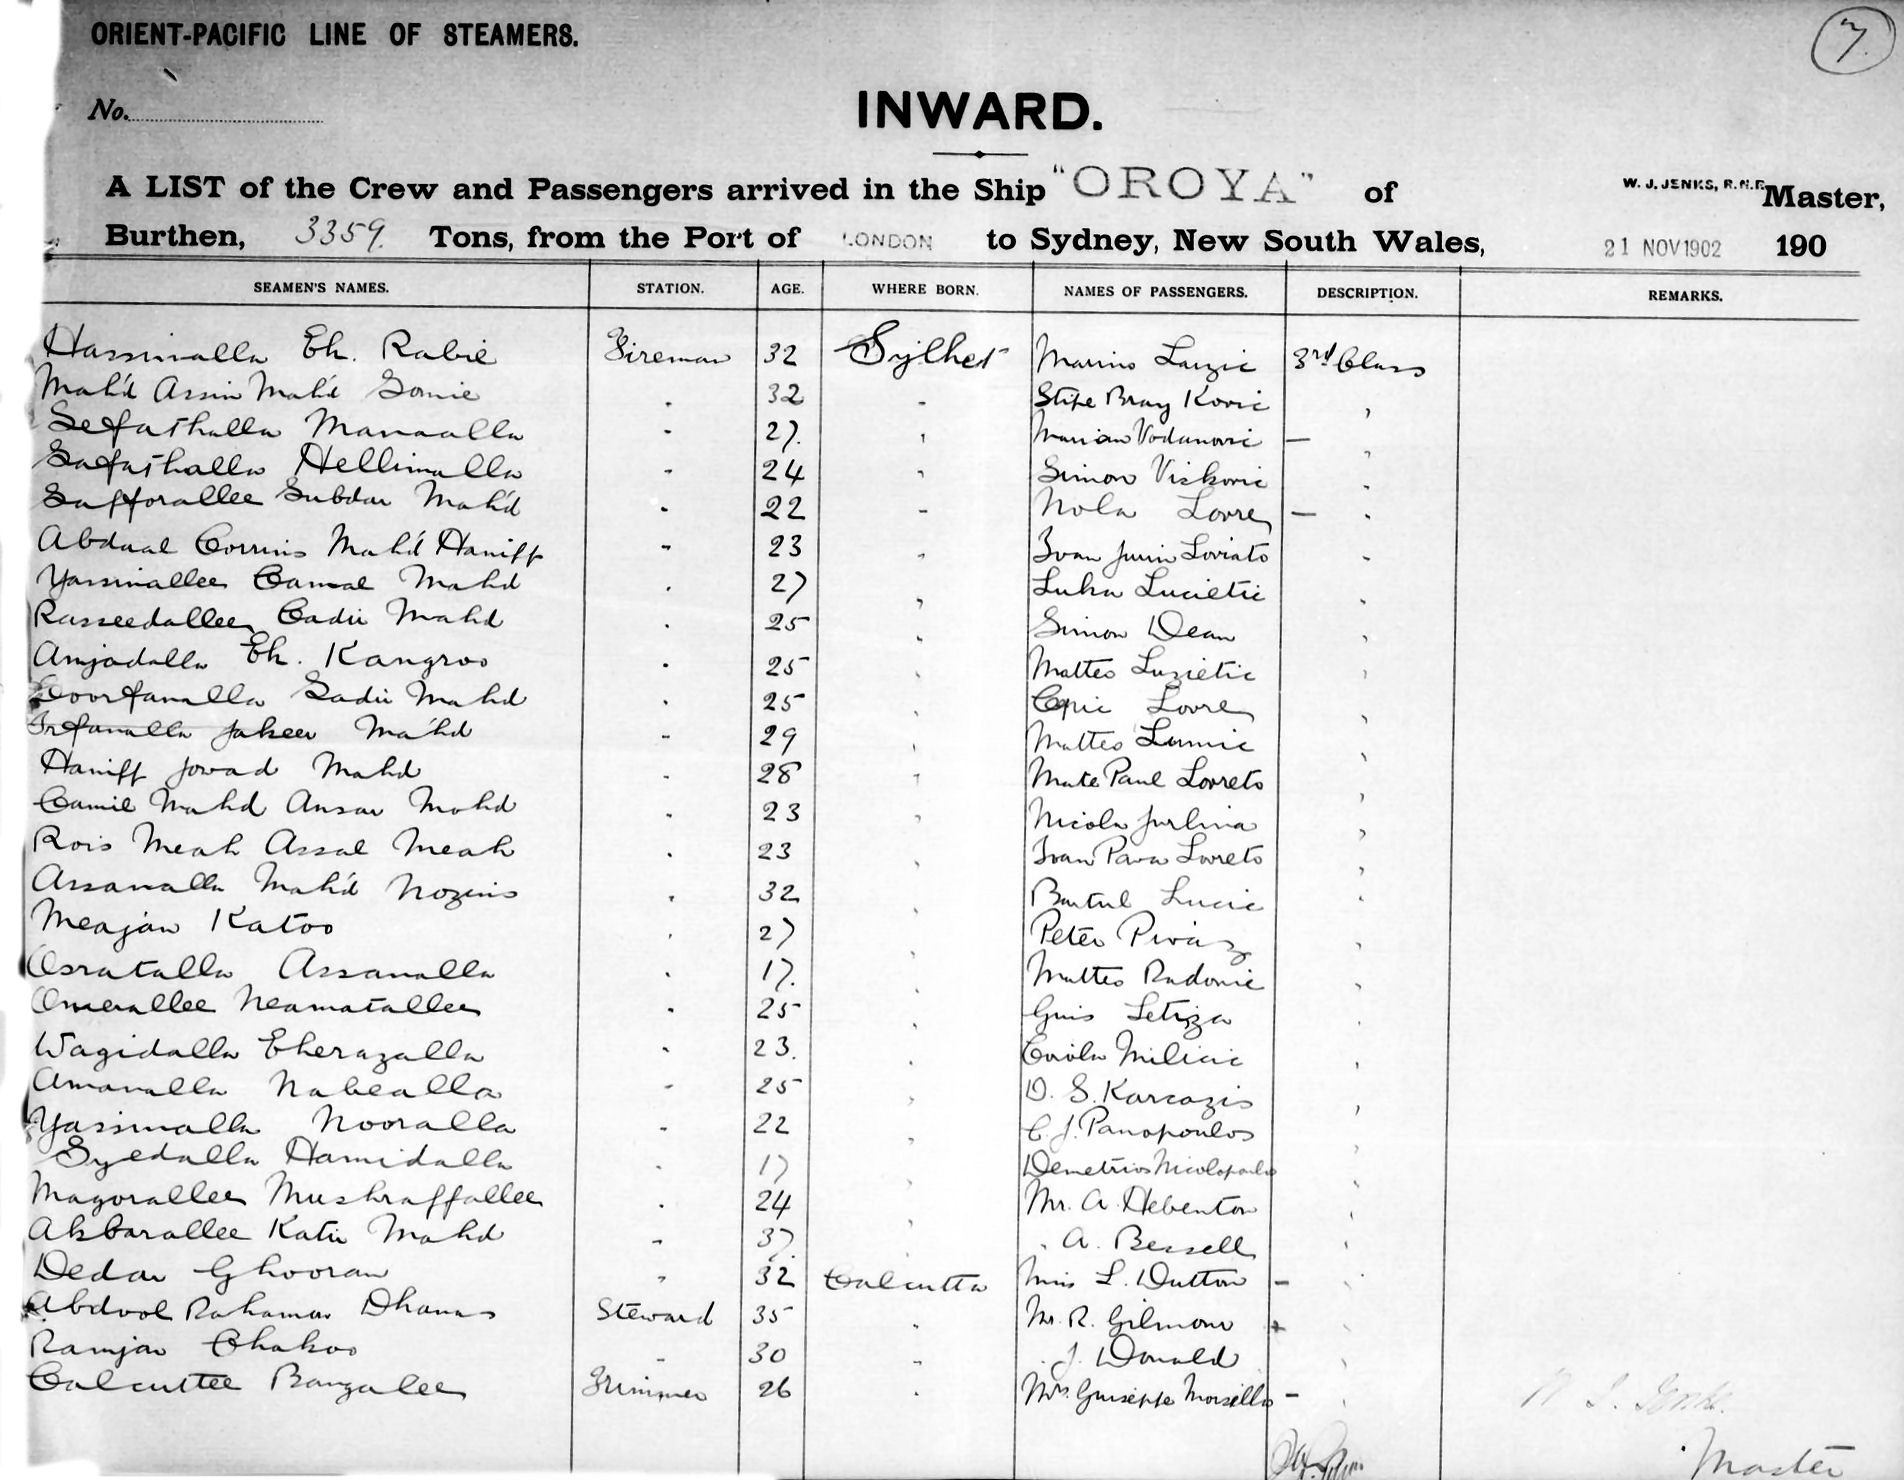 ORIENT-PACIFIC LINE OF STEAMERS.
7.
No.
INWARD.
A LIST of the Crew and Passengers arrived in the Ship "OROYA" of W. J. JENKS, R.N.R. Master,
Burthen, 3359. Tons, from the Port of LONDON to Sydney, New South Wales, 21 NOV 1902 190
SEAMEN'S NAMES. STATION. AGE. WHERE BORN. NAMES OF PASSENGERS. DESCRIPTION. REMARKS.
Hassinalla Eh. Rabie Fireman 32 Sylhet Marino 3rd Class
Mah'd Assin Mah'd Somie 32 Stipe Bray Kovic
Sefathalla Manaalla 27. Marian Vodanovic —
Safathalla Hellimalla 24 Simon Viskovic
Safforallee Subdar Mah'd 22 Nola Lovre —
Abdual Corrims Mah'd Haniff 23 Ivan Jurin Loviato
Yassinallee Camal Mahd 27 Luka Lucietic
Rasseedallee Cadir Mahd 25 Simon Dean
Amjadalla Eh. Kangroo 25 Matteo Luzietic
Sadir Mahd 25 Epic Lovre
Jakeer Mahd 29 Matteo
Haniff Jowad Mahd 28 Mate Paul Lorreto
Camil Mahd Ansar Mohd 23 Nicola Jurlina
Rois Meah Assal Meah 23 Ivan Pava Lorreto
Assanalla Mah'd Nozims 32 Bartul Lucic
Meajan Katoo 27 Peter
Osratalla Assanalla 17. Matteo Radonic
Omerallee Neamatallee 25 Letiza
Wagidalla Eherazalla 23. Milicic
Amanalla Nabealla 25 D. S. Karcazis
Yassinalla Nooralla 22 C. J. Panopoulos
Syedalla Hamidalla 17 Demetrios Nicolopoulos
Mazorallee Mushraffallee 24 Mr. A. Hebenton
Akbarallee Katir Mahd 37. A. Bessell
Dedar Ghooran 32 Calcutta Miss L. Dutton —
Abdool Rahaman Dhanas Steward 35 Mr. R. Gilmour +
Ramjan Chakoo 30 J. Donald
Calcuttee Bangalee Trimmer 26 Mrs. Guiseppe Morsillo —
W. J. Jenks.
Master